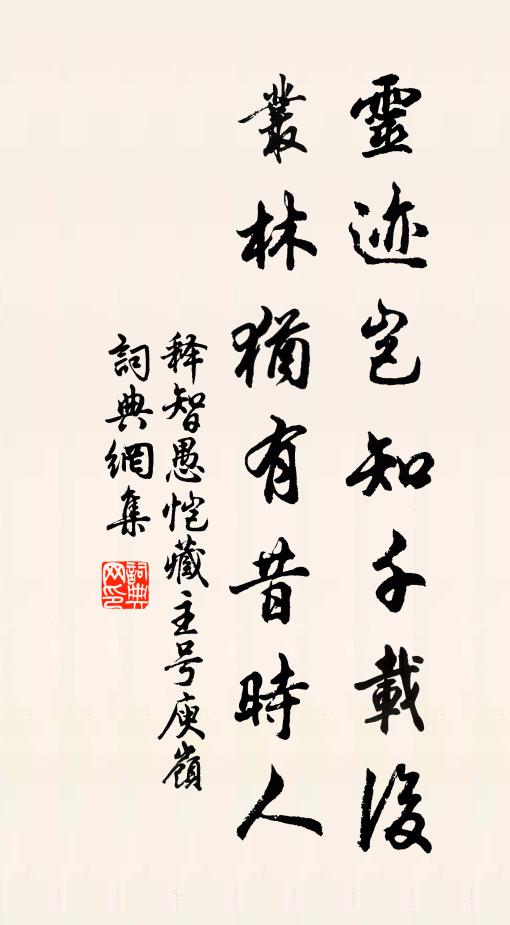 靈迹岂知千載後
叢林猶有昔時人
释智愚恺藏主号庾嶺
詞典網集
詞典网印